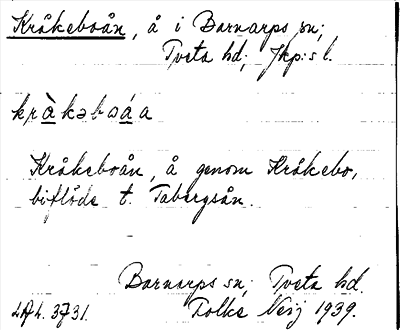 Kråkeboån, å i Barnarps sn;
Tveta hd; Jkp:s l.
kràkəboáa
Kråkeboån, å genom Kråkebo,
biflöde t. Tabergsån.
Barnarps sn; Tveta hd.
Folke Neij 1939.